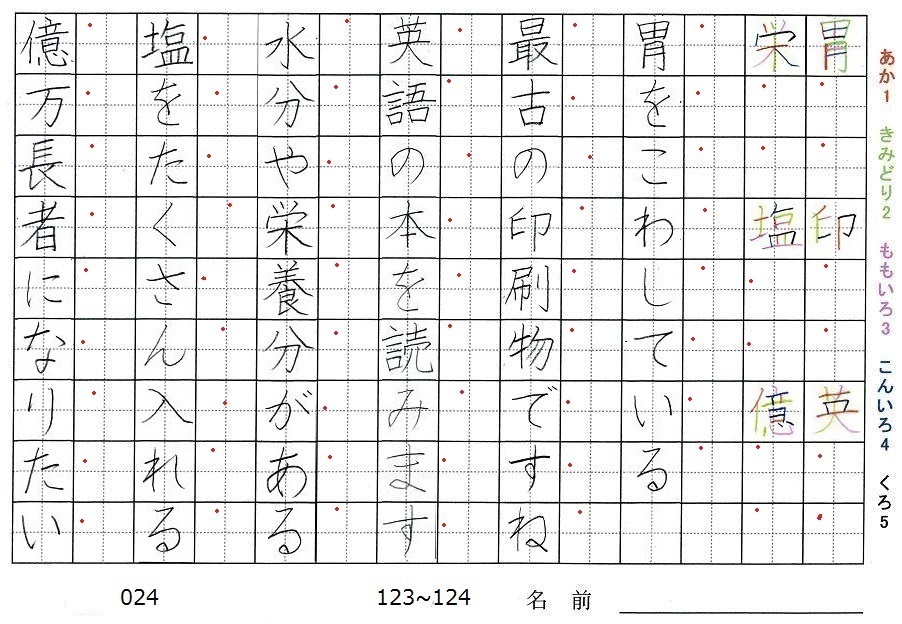 あか1 きみどり2 ももいろ3 こんいろ4 くろ5
胃印英
栄塩億
胃をこわしている
最古の印刷物ですね
英語の本を読みます
水分や栄養分がある
塩をたくさん入れる
億万長者になりたい
024 123~124 名前